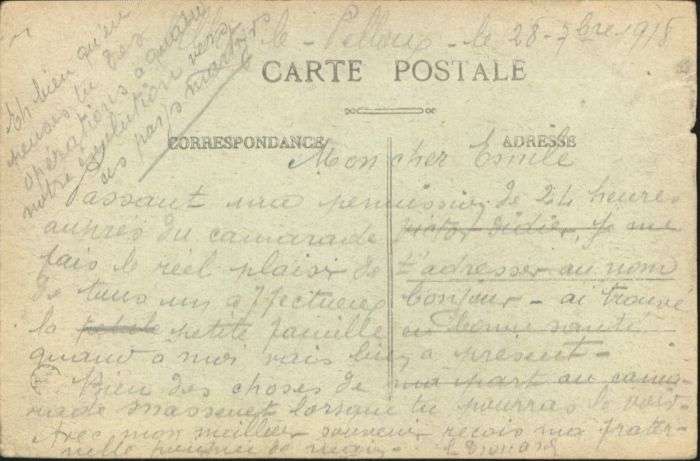 le - 28 - 7bre 1918
Et bien qu'en
penses tu des
opérations à quand
notre évolution vers
ces pays
CARTE POSTALE
CORRESPONDANCE
ADRESSE
Mon cher Emile
Passant une permission de 24 heures
auprès du camarade Didier, je me
fais le réel plaisir de t'adresser au nom
de tous un affectueux bonjour - ai trouvé
la petite famille en bonne santé
quand à moi vais bien à présent -
Bien des choses de ma part au cama-
rade Massenet lorsque tu pourras le voir
Avec mon meilleur souvenir reçois ma frater-
nelle poignée de main -